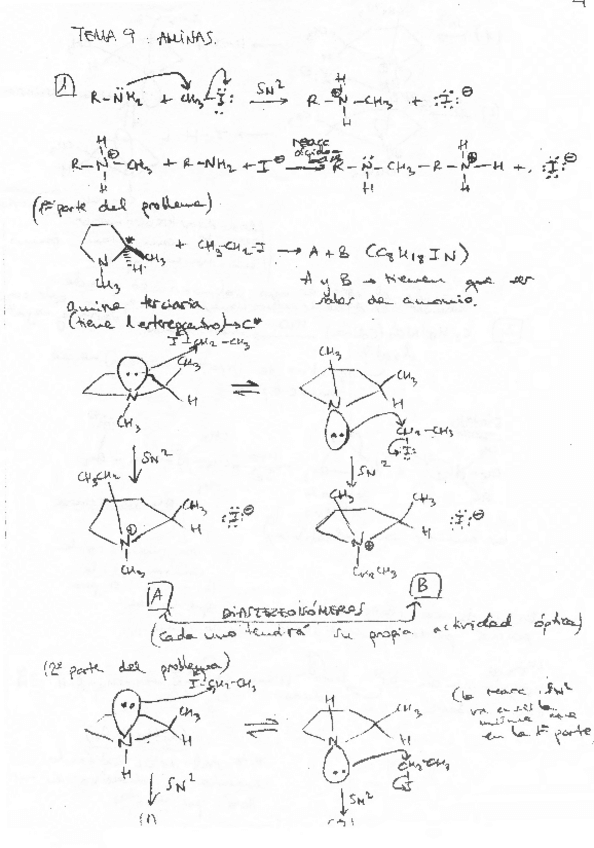 TEMA 9: AMINAS.
1 R-NH2 + CH3-I: SN2 R-N-CH3 + :I:⊖
R-N-CH3 + R-NH2 + I⊖ reacc ácido- R-N-CH3 + R-N-H + :I:⊖
(1ª parte del problema)
+ CH3-CH2-I → A + B (C8H18IN)
CH3
H
N
CH3
A y B → tienen que ser
sales de amonio.
amina terciaria
(tiene 1 estereocentro) → C*
I CH2-CH3
CH3
H
N
CH3
⇌
CH3
CH3
H
N
CH2-CH3
I:
SN2
SN2
CH3CH2
CH3
H
:I:⊖
N⊕
CH3
CH3
CH3
H
:I:⊖
N⊕
CH2CH3
A
B
DIASTEREOISÓMEROS
(cada uno tendrá su propia actividad óptica)
(2ª parte del problema)
I-CH2-CH3
CH3
H
N
H
⇌
H
CH3
H
N
CH2-CH3
I
(la reacc. SN2
la
misma que
en la 1ª parte)
SN2
SN2